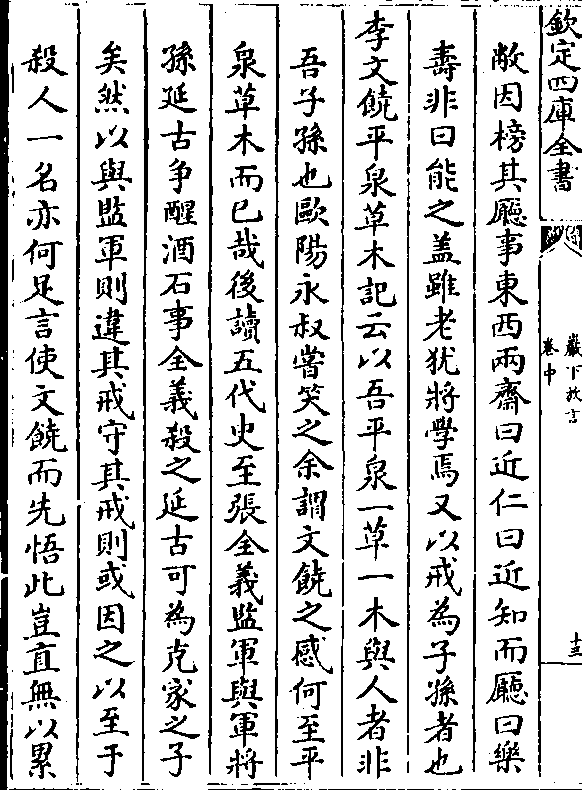 欽定四庫全書
巖下放言
卷中
十三
敝因榜其廳事東西兩齋曰近仁曰近知而廳曰樂
壽非曰能之盖雖老猶將學焉又以戒為子孫者也
李文饒平泉草木記云以吾平泉一草一木與人者非
吾子孫也歐陽永叔嘗笑之余謂文饒之惑何至平
泉草木而已哉後讀五代史至張全義監軍與軍將
孫延古争醒酒石事全義殺之延古可為克家之子
矣然以與監軍則違其戒守其戒則或因之以至于
殺人一名亦何足言使文饒而先悟此豈直無以累